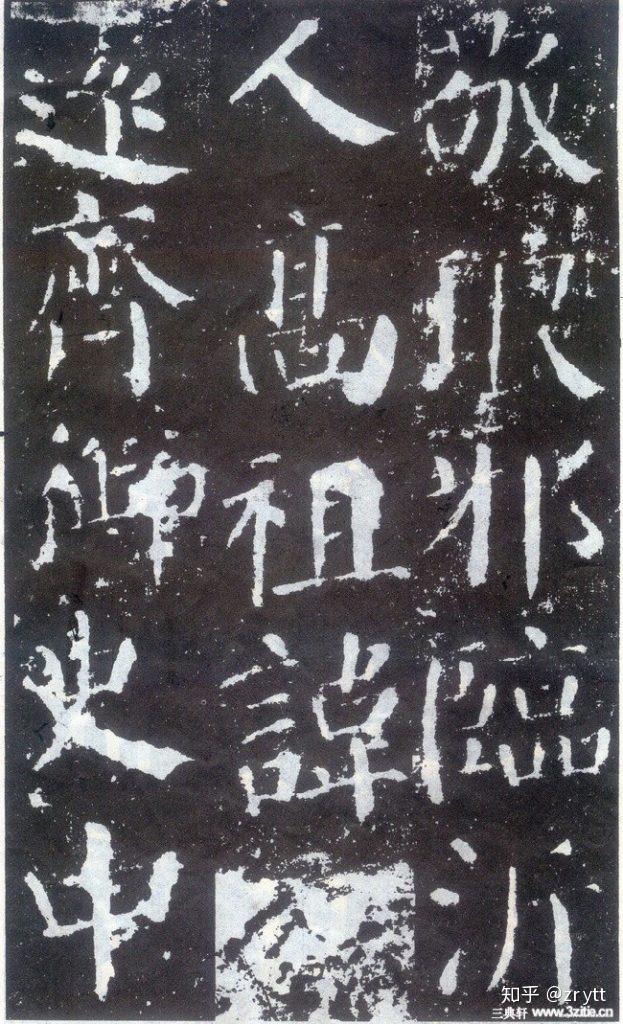 敬琅邪臨沂
人髙祖諱
遠齊御史中
知乎 @zrytt
三典轩 www.3zitie.cn